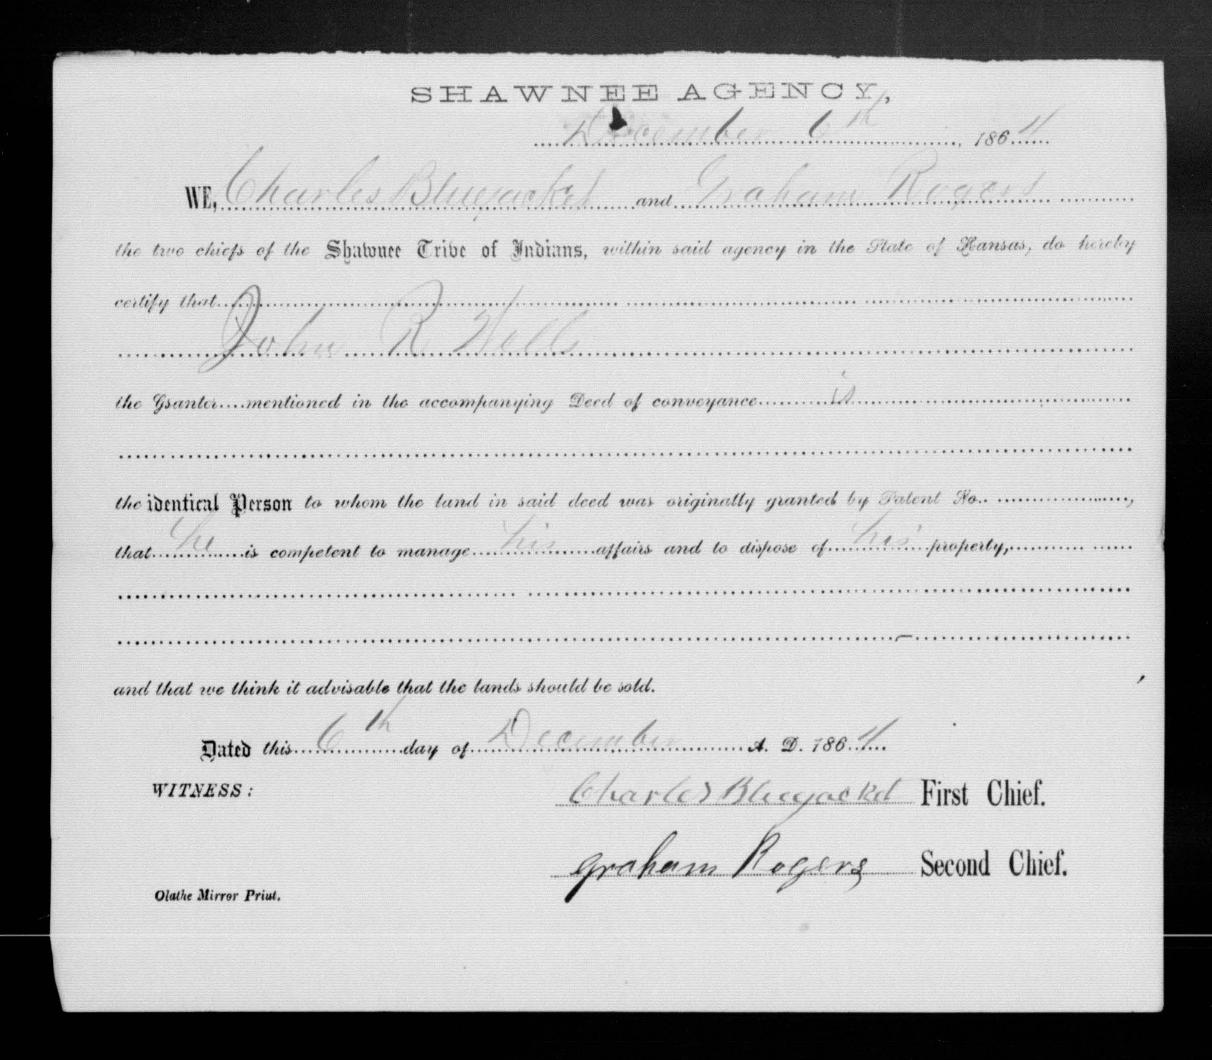 SHAWNEE AGENCY,
December 6th, 1864
WE, Charles Bluejacket and Graham Rogers
the two chiefs of the Shawnee Tribe of Indians, within said agency in the State of Kansas, do hereby
certify that
John R Wells
the Granter....mentioned in the accompanying Deed of conveyance is
the identical Person to whom the land in said deed was originally granted by Patent No.. ,
that he is competent to manage his affairs and to dispose of his property,
and that we think it advisable that the lands should be sold.
Dated this 6th day of December A. D. 1864
WITNESS:
Charles Bluejacket First Chief.
Graham Rogers Second Chief.
Olathe Mirror Print.